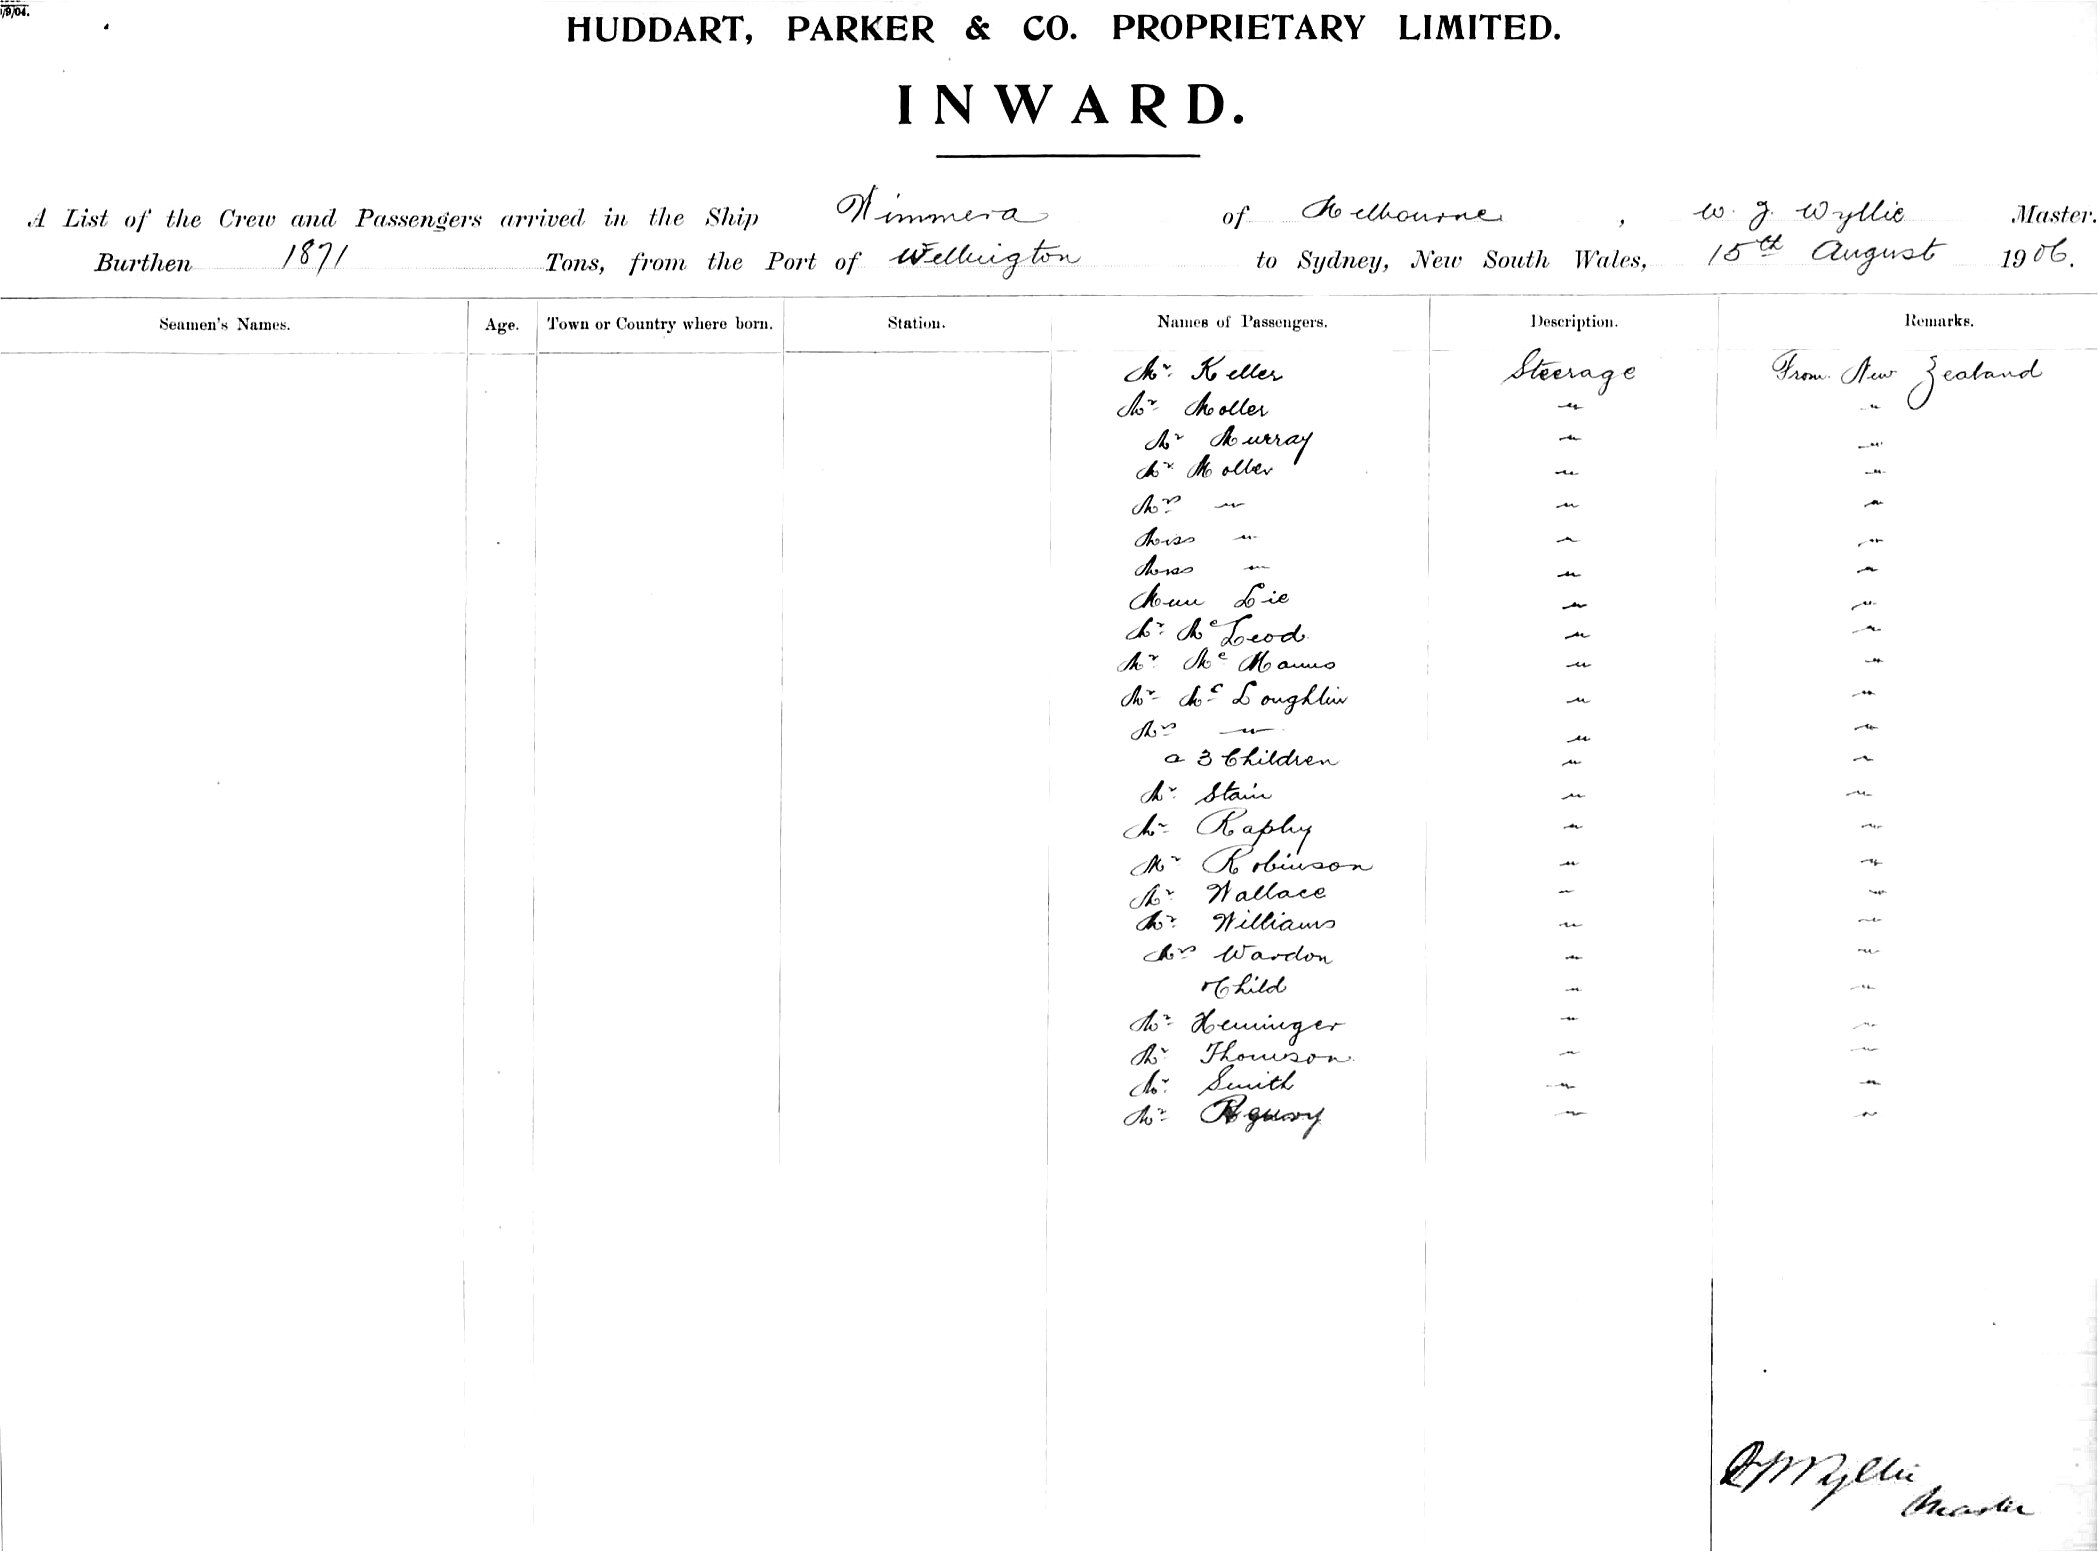 1/9/04.
HUDDART, PARKER & CO. PROPRIETARY LIMITED.
INWARD.
A List of the Crew and Passengers arrived in the Ship Wimmera of Melbourne, W. J. Wyllie Master.
Burthen 1871 Tons, from the Port of Wellington to Sydney, New South Wales, 15th August 1906.
Seamen's Names. Age. Town or Country where born. Station. Names of Passengers. Description. Remarks.
Mr. Keller Steerage From New Zealand
Mr. Moller " "
Mr Murray " "
Mr. Moller " "
Mrs " " "
Miss " " "
Miss " " "
Mun Lie " "
Mr. McLeod " "
Mr McManus " "
Mr McLoughlin " "
Mrs " " "
3 Children " "
Mr. Stain " "
Mr Raphy " "
Mr Robinson " "
Mr. Wallace " "
Mr. Williams " "
Mrs Wardon " "
Child " "
Mr Heminger " "
Mr. Thomson " "
Mr. Smith " "
Mr " "
Wyllie
Master